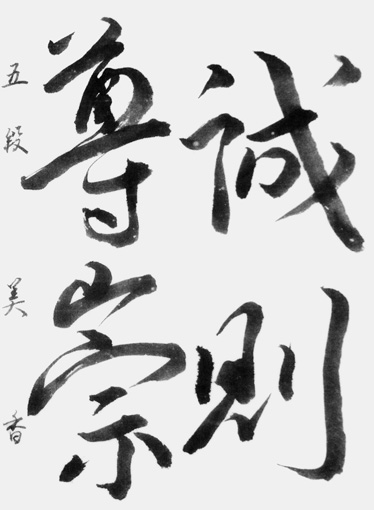 誠則
尊崇
五段 美香